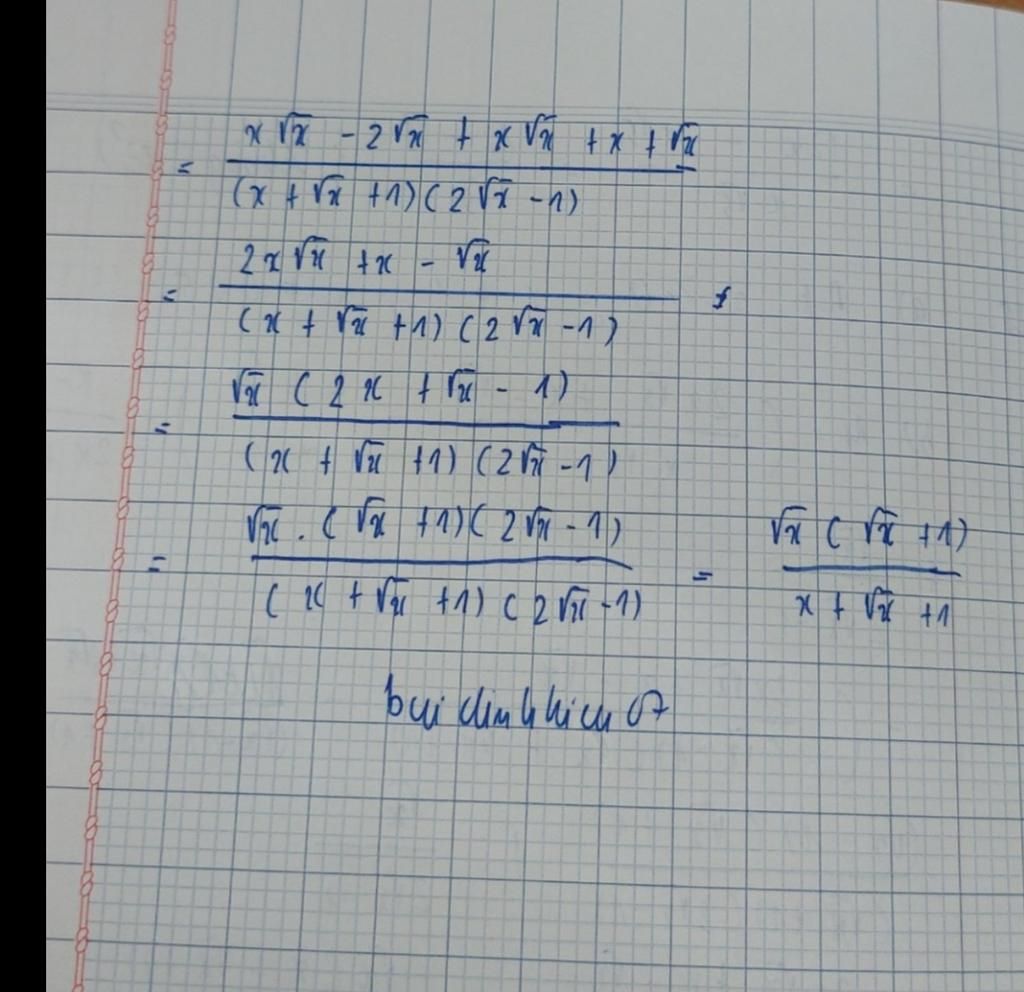 = \frac{x\sqrt{x} - 2\sqrt{x} + x\sqrt{x} + x + \sqrt{x}}{(x + \sqrt{x} + 1)(2\sqrt{x} - 1)}
= \frac{2x\sqrt{x} + x - \sqrt{x}}{(x + \sqrt{x} + 1)(2\sqrt{x} - 1)}
= \frac{\sqrt{x}(2x + \sqrt{x} - 1)}{(x + \sqrt{x} + 1)(2\sqrt{x} - 1)}
= \frac{\sqrt{x} . (\sqrt{x} + 1)(2\sqrt{x} - 1)}{(x + \sqrt{x} + 1)(2\sqrt{x} - 1)} = \frac{\sqrt{x}(\sqrt{x} + 1)}{x + \sqrt{x} + 1}
bui dinh hieu 07